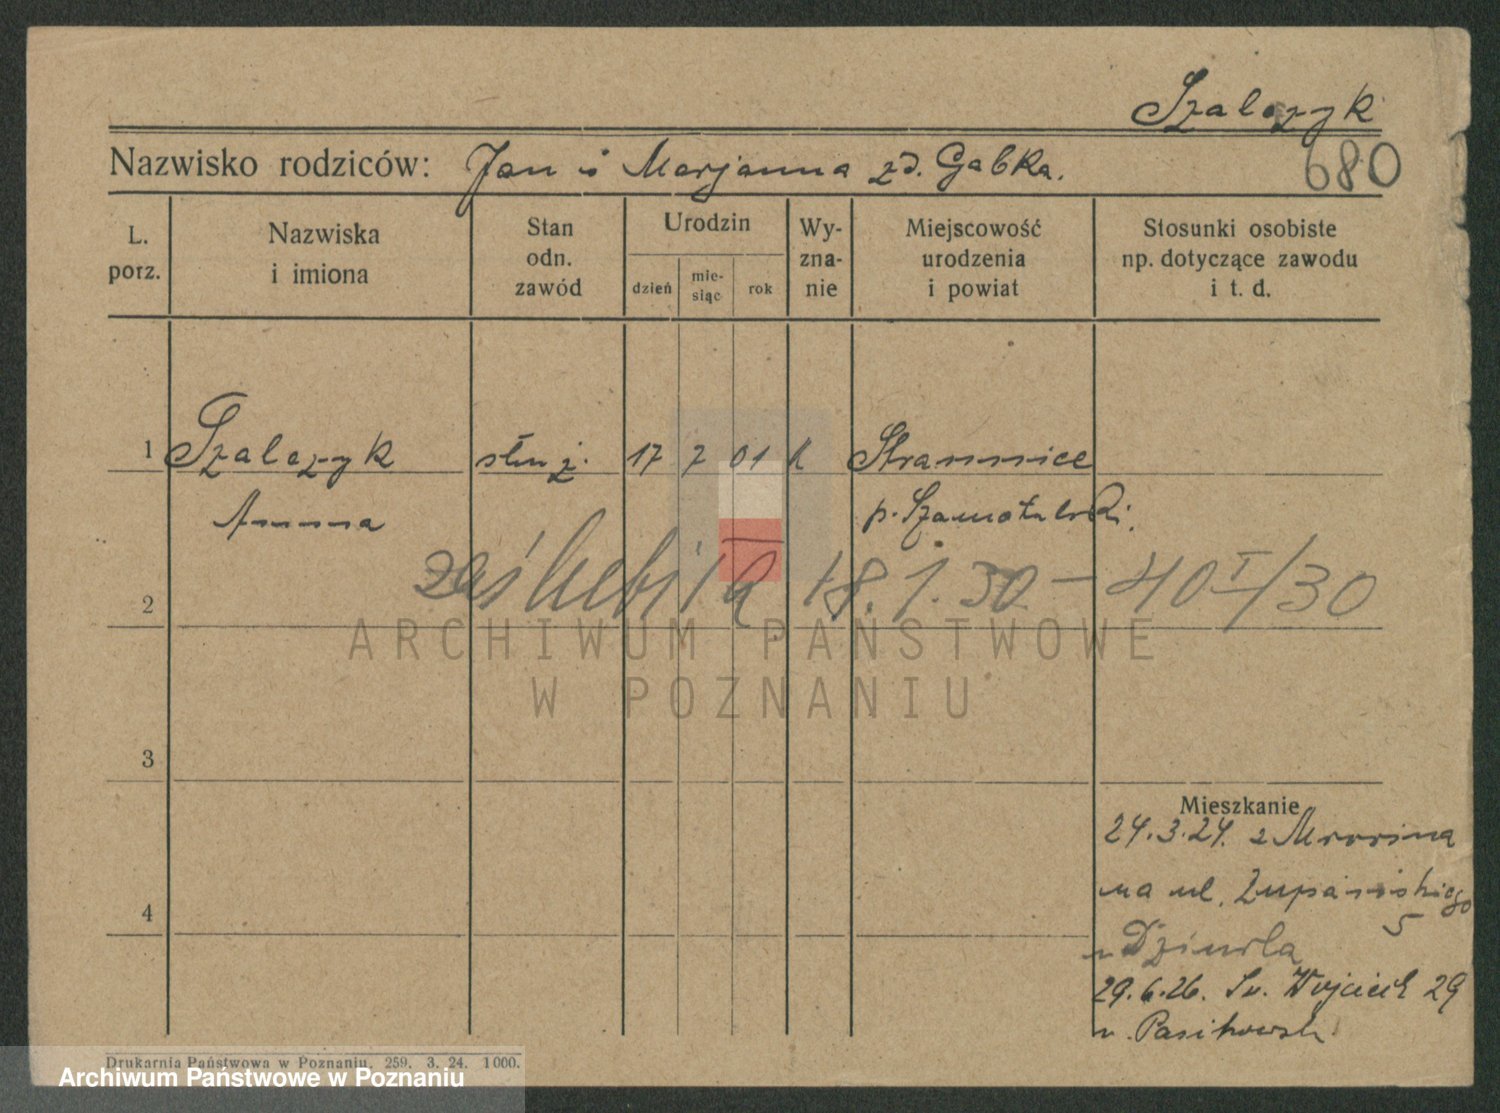 Szalczyk
Nazwisko rodziców: Jan i Marjanna zd. Gabka.
680
L. porz.
Nazwiska i imiona
Stan odn. zawód
Urodzin
dzień
mie-siąc
rok
Wy-zna-nie
Miejscowość urodzenia i powiat
Stosunki osobiste np. dotyczące zawodu i t. d.
1 Szalczyk służ. 17 7 01 k
Anna p. Szamotulski.
zaślubiła 18.1.30 — 40 I/30
2
ARCHIWUM PAŃSTWOWE
W POZNANIU
3
Mieszkanie
24.3.24. z
na ul. Żupańskiego
5
4
u Dziurla
29.6.26. Św. Wojciech 29
u. Pasikowski
Drukarnia Państwowa w Poznaniu. 259. 3. 24. 1000.
Archiwum Państwowe w Poznaniu